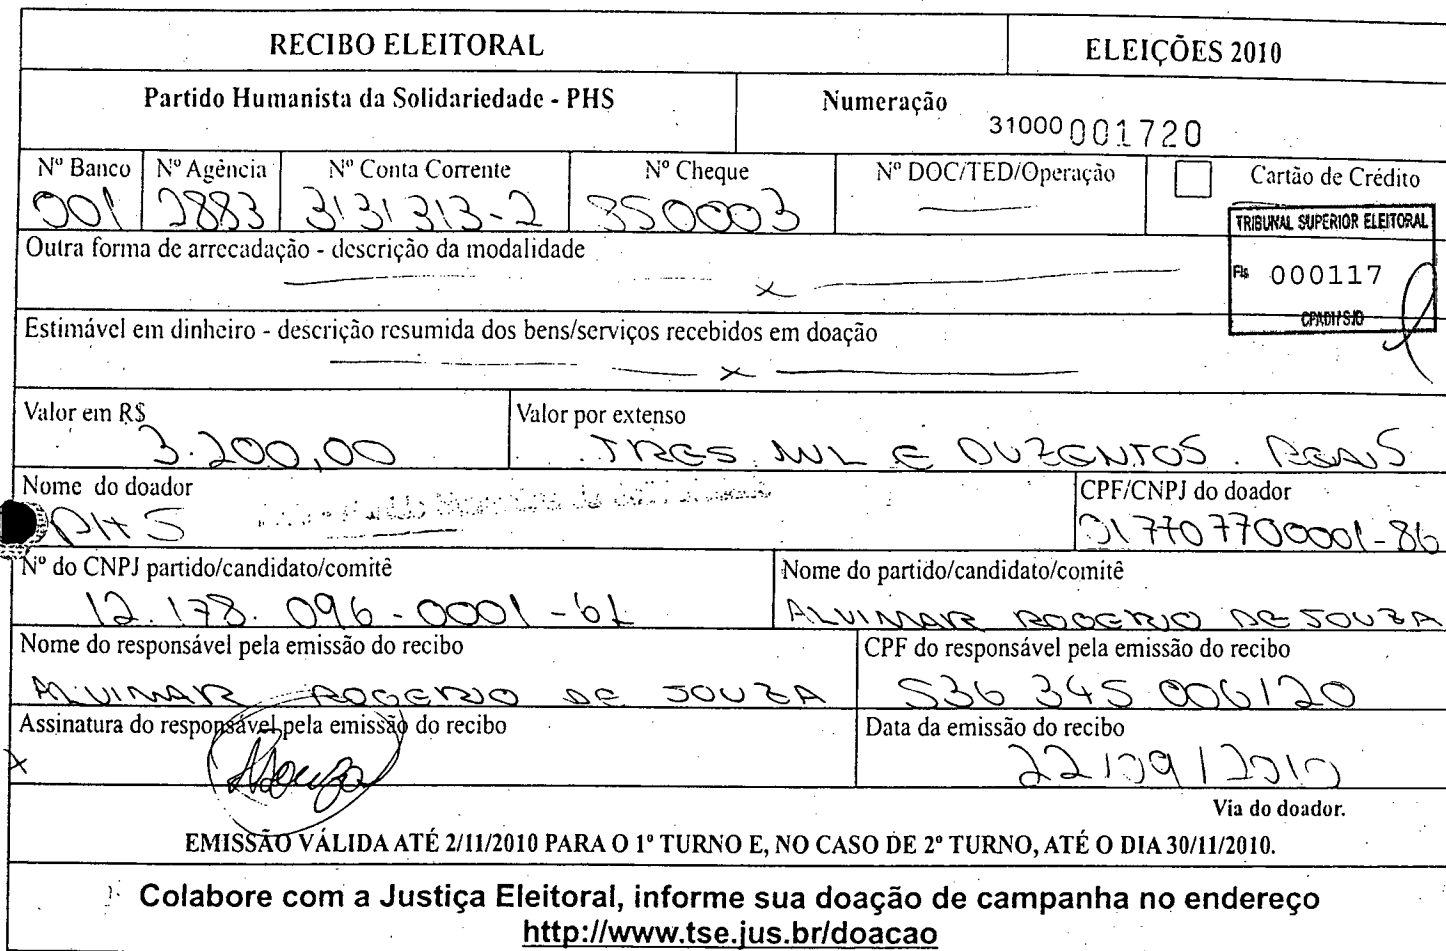 RECIBO ELEITORAL
ELEIÇÕES 2010
Partido Humanista da Solidariedade - PHS
Numeração
31000 001720
Nº Banco Nº Agência Nº Conta Corrente Nº Cheque Nº DOC/TED/Operação Cartão de Crédito
001 2883 3131313-2 850003
TRIBUNAL SUPERIOR ELEITORAL
Fls 000117
CPADI/SJD
Outra forma de arrecadação - descrição da modalidade
x
Estimável em dinheiro - descrição resumida dos bens/serviços recebidos em doação
x
Valor em R$ Valor por extenso
3.200,00 TRES MIL E DUZENTOS REAIS
Nome do doador CPF/CNPJ do doador
PHS 017707700001-86
Nº do CNPJ partido/candidato/comitê Nome do partido/candidato/comitê
12.178.096-0001-61 ALVIMAR ROGERIO DE SOUZA
Nome do responsável pela emissão do recibo CPF do responsável pela emissão do recibo
ALVIMAR ROGERIO DE SOUZA 536 345 006/20
Assinatura do responsável pela emissão do recibo Data da emissão do recibo
x ASouza 22/09/2010
Via do doador.
EMISSÃO VÁLIDA ATÉ 2/11/2010 PARA O 1º TURNO E, NO CASO DE 2º TURNO, ATÉ O DIA 30/11/2010.
Colabore com a Justiça Eleitoral, informe sua doação de campanha no endereço
http://www.tse.jus.br/doacao